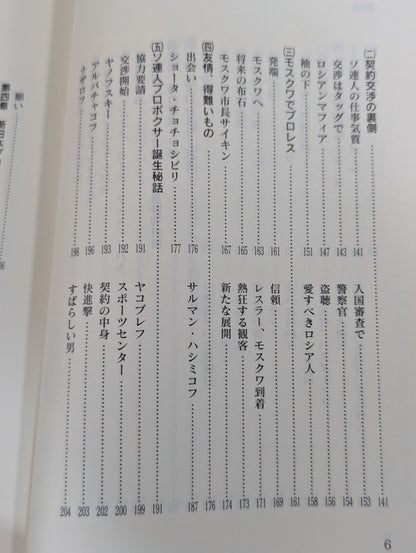 ㈡契約交渉の裏側 141
ソ連人の仕事気質 141
入国審査で 153
交渉はタッグで 143
警察官 154
ロシアンマフィア 147
盗聴 156
袖の下 151
愛すべきロシア人 158
㈢モスクワでプロレス 161
発端 161
信頼 169
モスクワへ 163
レスラー、モスクワ到着 171
将来の布石 165
熱狂する観客 173
モスクワ市長サイキン 167
新たな展開 174
㈣友情、得難いもの 176
出会い 176
サルマン・ハシミコフ 187
ショータ・チョチョシビリ 177
㈤ソ連人プロボクサー誕生秘話 191
協力要請 191
ヤコブレフ 199
交渉開始 192
スポーツセンター 200
ヤノフスキー 193
契約の中身 202
アルバチャコフ 196
快進撃 203
ナザロフ 198
すばらしい男 204
6
第四章